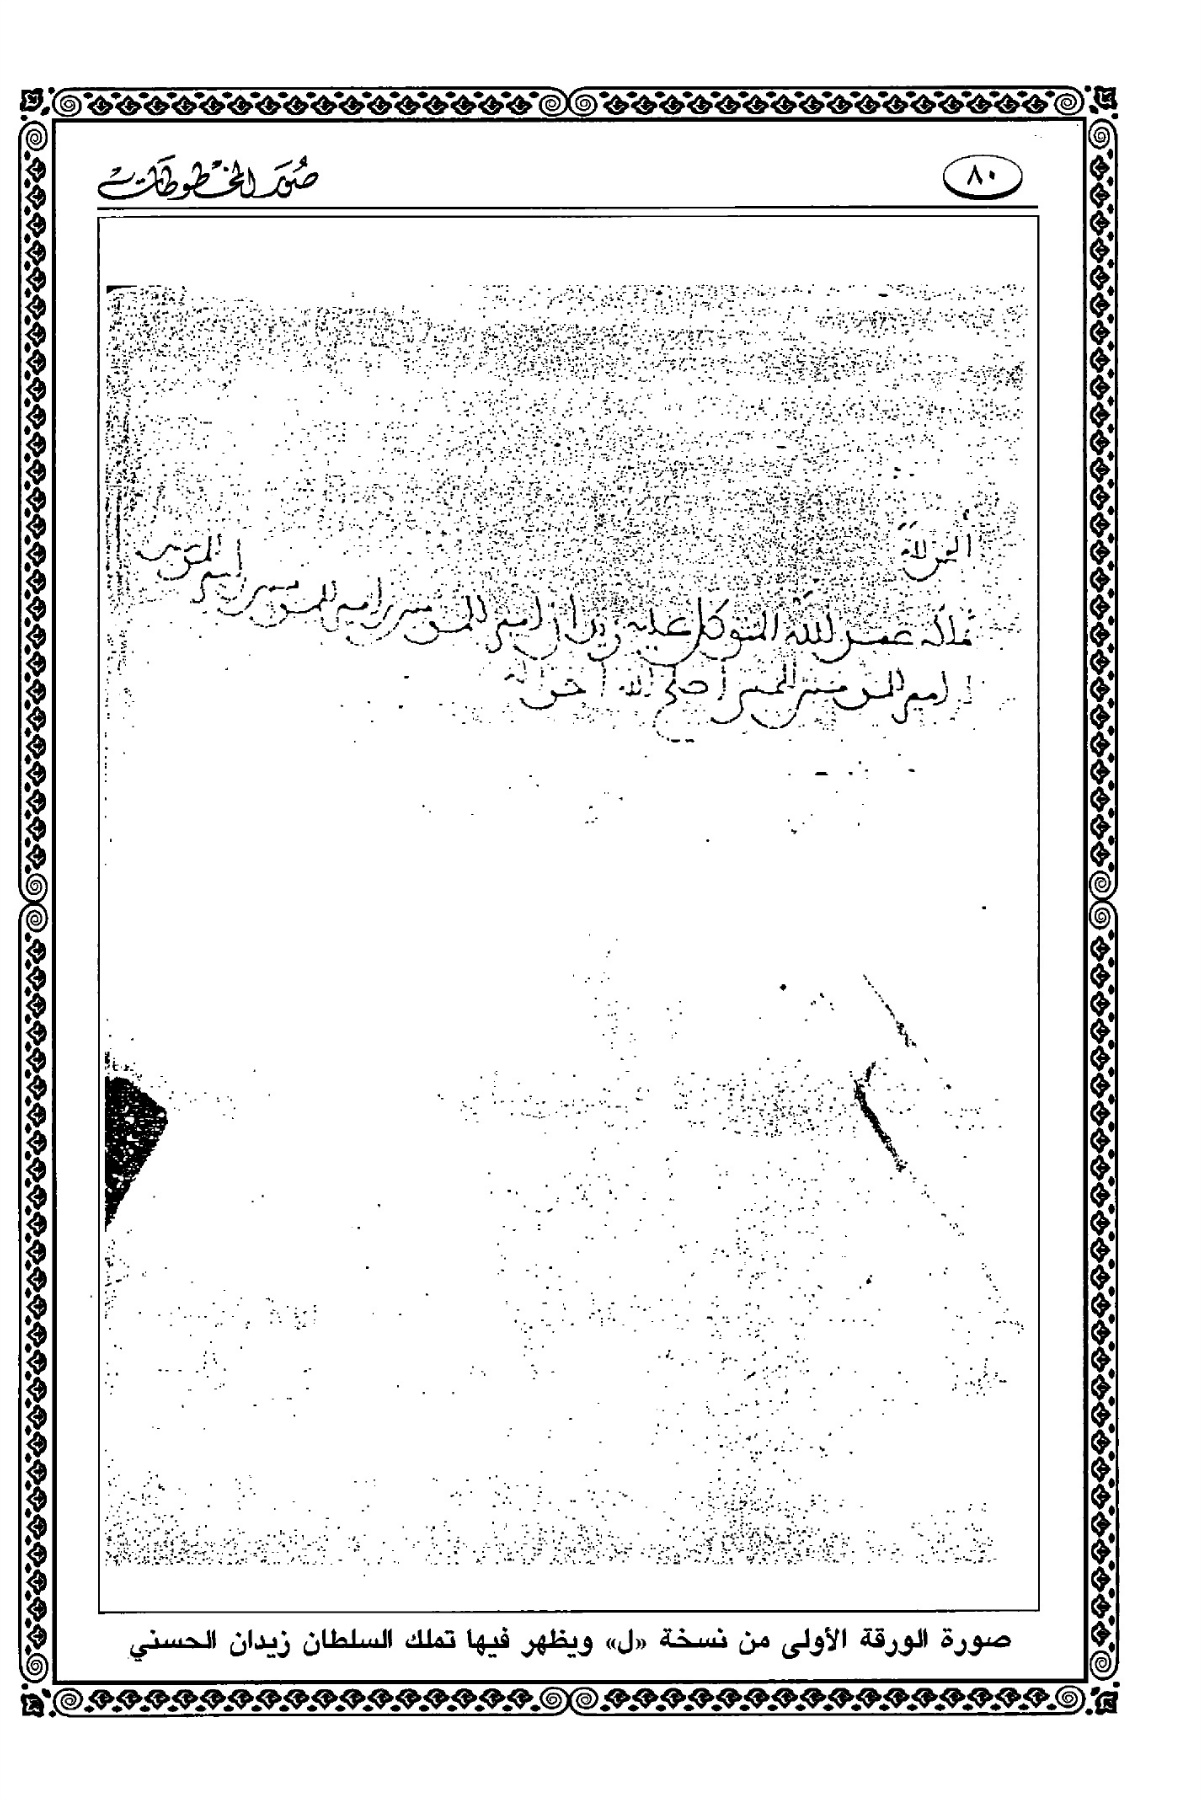 صور المخطوطات
٨٠
الحمد لله
تملكه عبد الله المتوكل عليه زيدان امير المومنين بن امير المومنين بن امير المومنين
ابن امير المومنين الحسني اصلح الله احواله
صورة الورقة الأولى من نسخة «ل» ويظهر فيها تملك السلطان زيدان الحسني